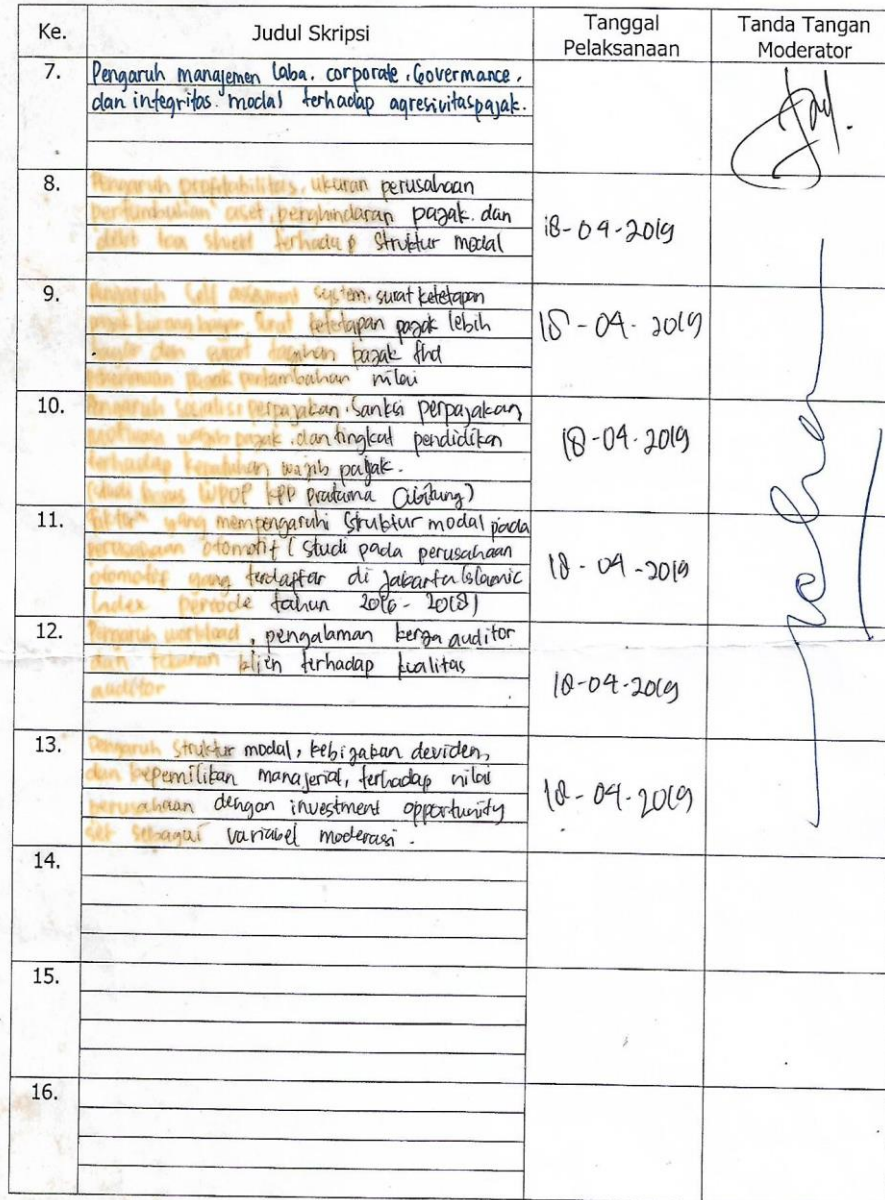 Ke. Judul Skripsi Tanggal Pelaksanaan Tanda Tangan Moderator
7. Pengaruh manajemen laba. corporate. Govermance,
dan integritas modal terhadap agresivitas pajak.
8. Pengaruh profitabilitas, ukuran perusahaan
pertumbuhan aset, penghindaran pajak. dan
terhadap struktur modal
18-04-2019
9. Pengaruh self assesment system. surat ketetapan
pajak kurang bayar, surat ketetapan pajak lebih
bayar dan surat tagihan pajak thd
penerimaan pajak pertambahan nilai
18-04-2019
10. Pengaruh sosialisi perpajakan. Sanksi perpajakan,
wajib pajak. dan tingkat pendidikan
terhadap kepatuhan wajib pajak.
(studi kasus WPOP KPP pratama Cibitung)
18-04-2019
11. yang mempengaruhi Struktur modal pada
perusahaan otomotif (studi pada perusahaan
otomotif yang terdaftar di jakarta islamic
Index periode tahun 2016-2018)
18-04-2019
12. Pengaruh workload, pengalaman kerja auditor
dan tekanan klien terhadap kualitas
auditor
18-04-2019
13. Pengaruh struktur modal, kebijakan deviden,
dan kepemilikan manajerial, terhadap nilai
perusahaan dengan investment opportunity
set sebagai variabel moderasi.
18-04-2019
14.
15.
16.